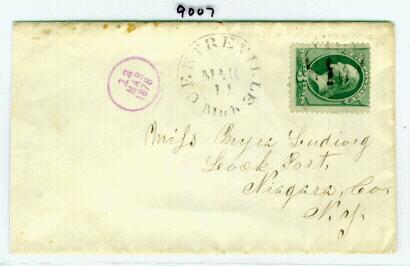 9007
CENTREVILLE
MAR
11
Mich
12
MAR
1878
Miss Myra Ludwig
Lock Port,
Niagara, Co.
N.Y.